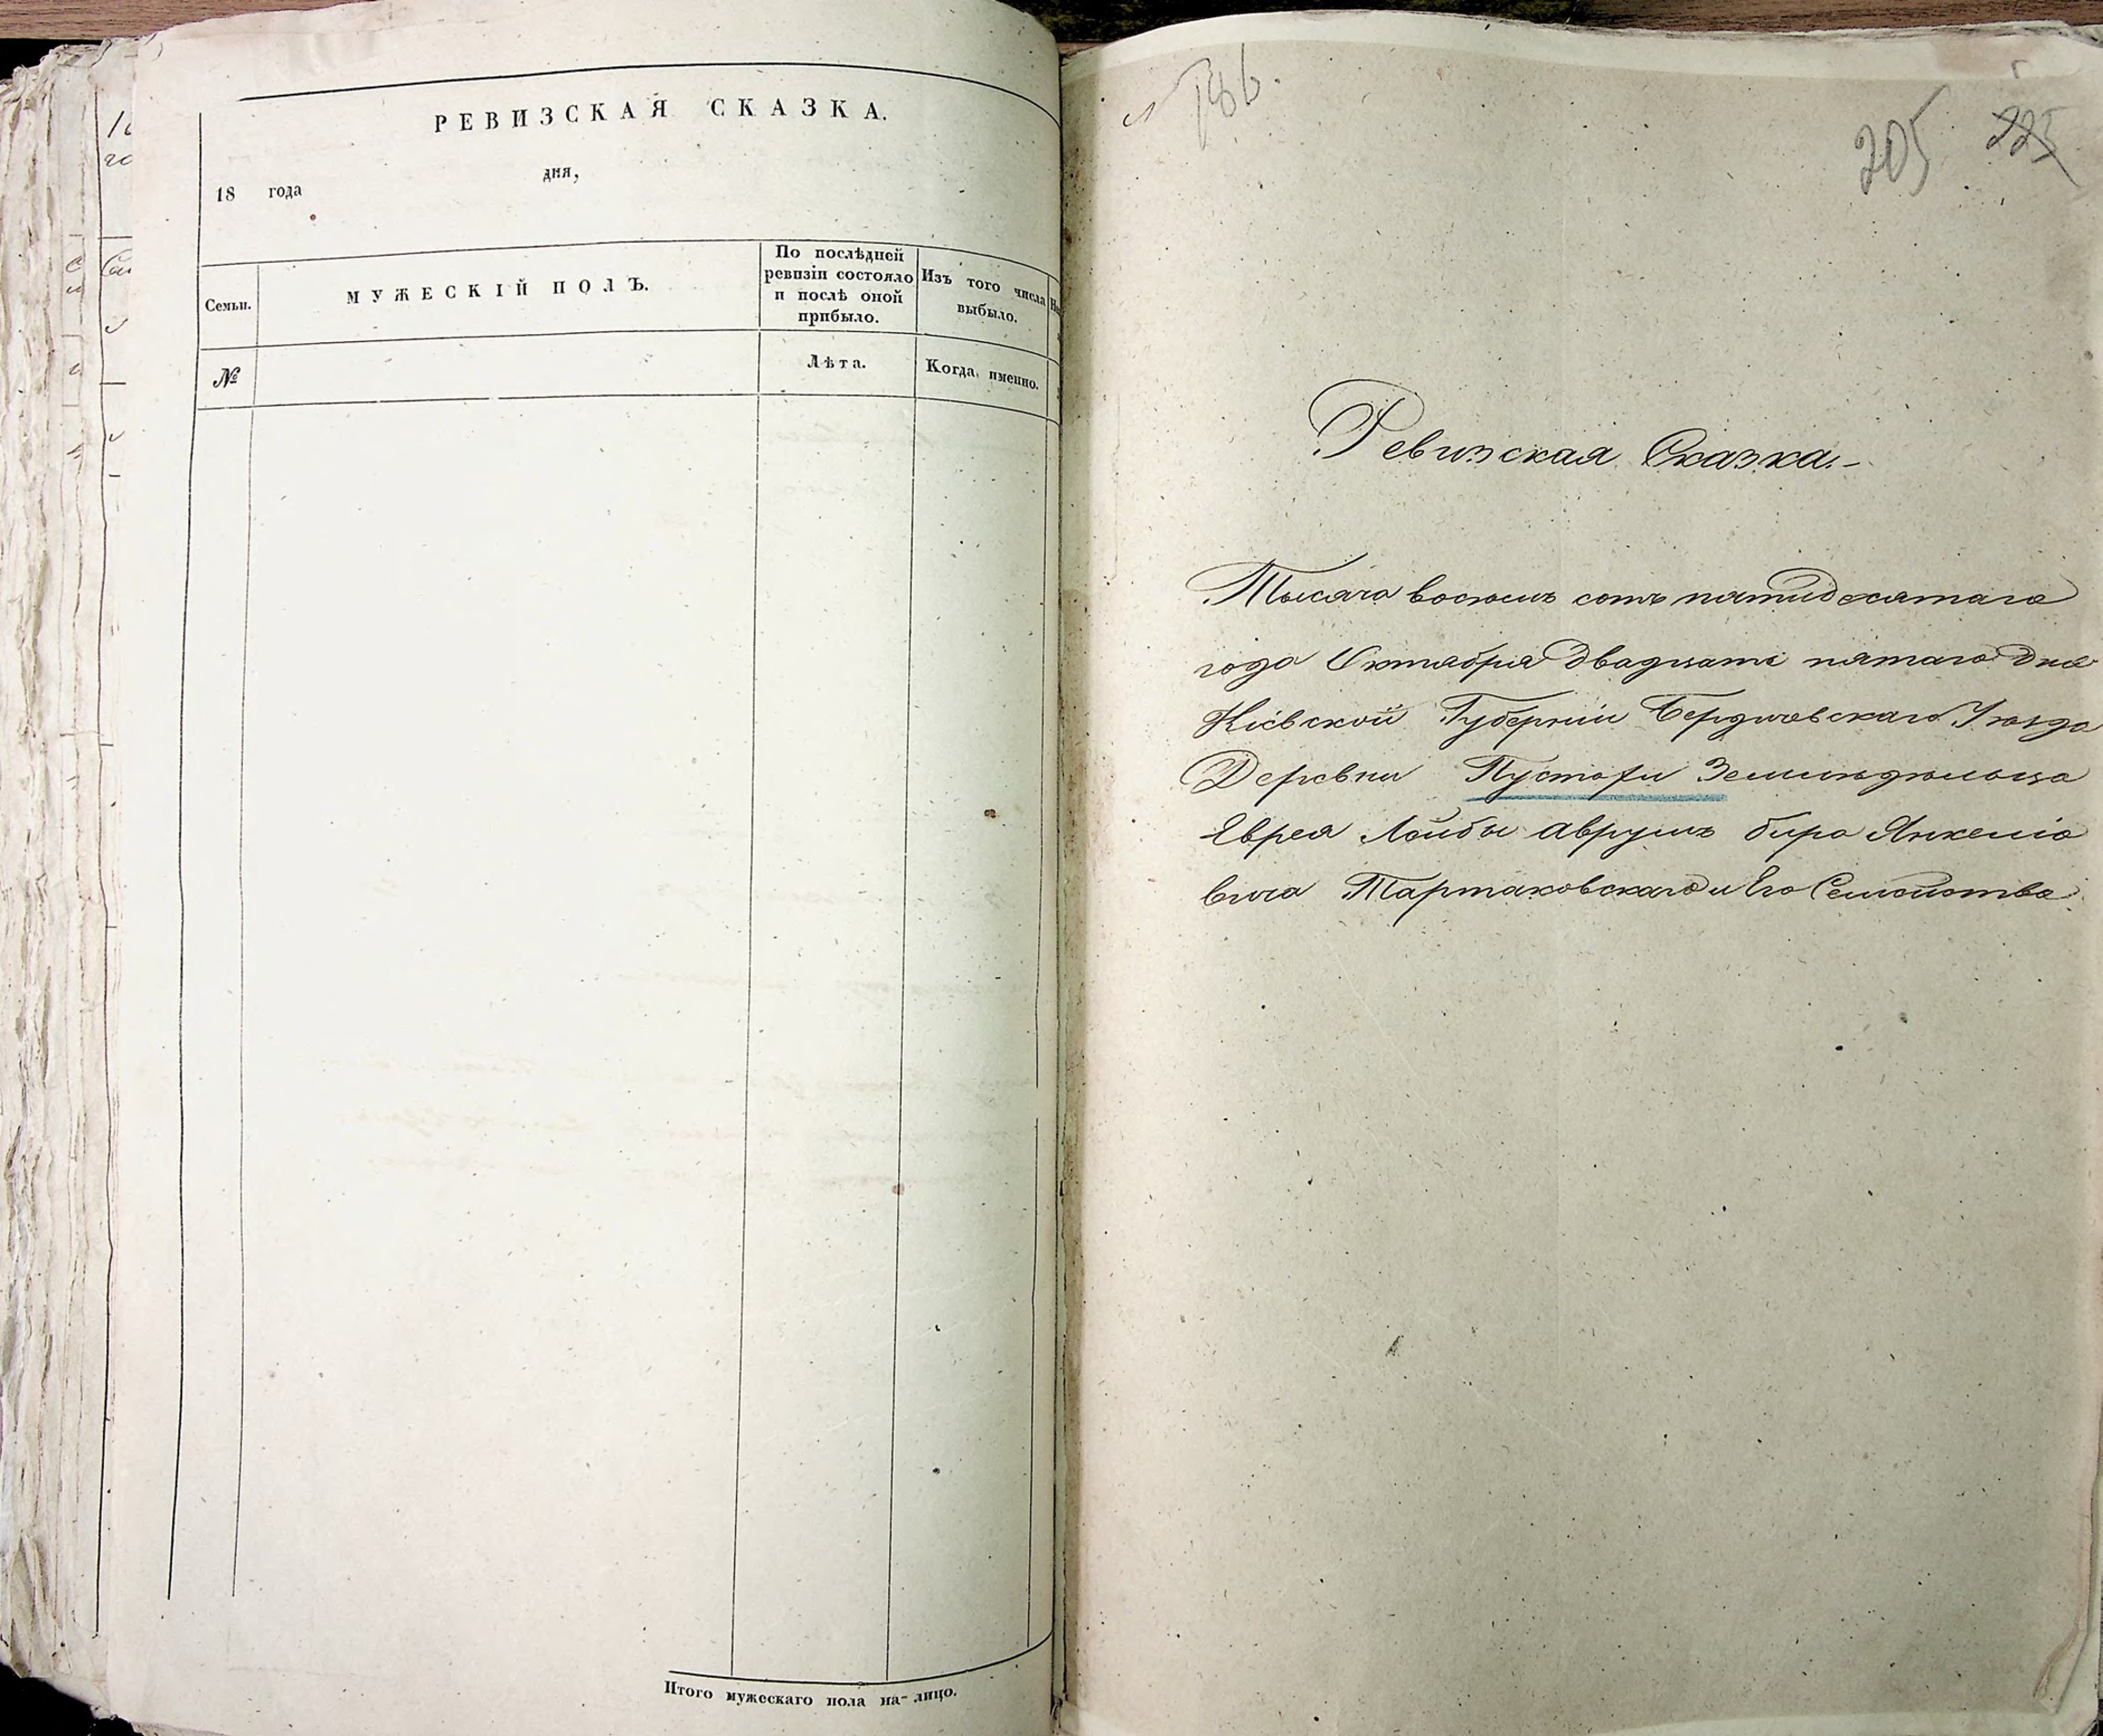 РЕВИЗСКАЯ СКАЗКА.
18 года дня,
Семьи.
МУЖЕСКІЙ ПОЛЪ.
По послѣдней
ревизіи состояло
и послѣ оной
прибыло.
Изъ того числа
выбыло.
№
Лѣта.
Когда именно.
Итого мужескаго пола на-лицо.
186.
205
225
Ревизская Сказка.-
Тысяча восемь сотъ пятидесятаго
года Октября двадцать пятаго дня
Кіевской Губерніи Бердичевскаго Уѣзда
Деревни Пустохи Земледѣльца
Еврея Лейбы Аврумъ бера Янкеліо
вича Тартаковскаго и Его Семейства